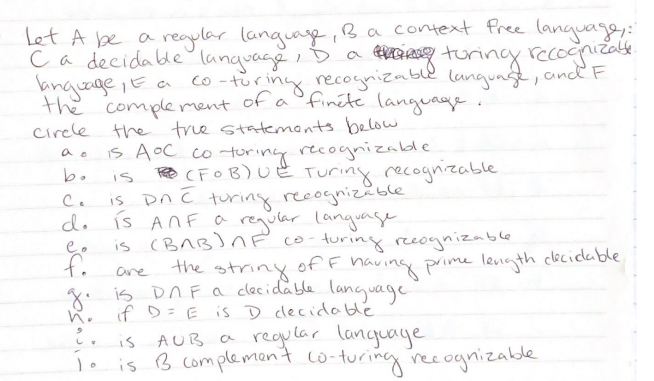 Let A be a regular language, B a context free language,
C a decidable language, D a turing recognizable
language, E a co-turing recognizable language, and F
the complement of a finite language.
circle the true statements below
a. is A∘C co-turing recognizable
b. is (F∘B)∪E Turing recognizable
c. is D∩C̅ turing recognizable
d. is A∩F a regular language
e. is (B∩B)∩F co-turing recognizable
f. are the string of F having prime length decidable
g. is D∩F a decidable language
h. if D=E is D decidable
i. is A∪B a regular language
j. is B complement co-turing recognizable